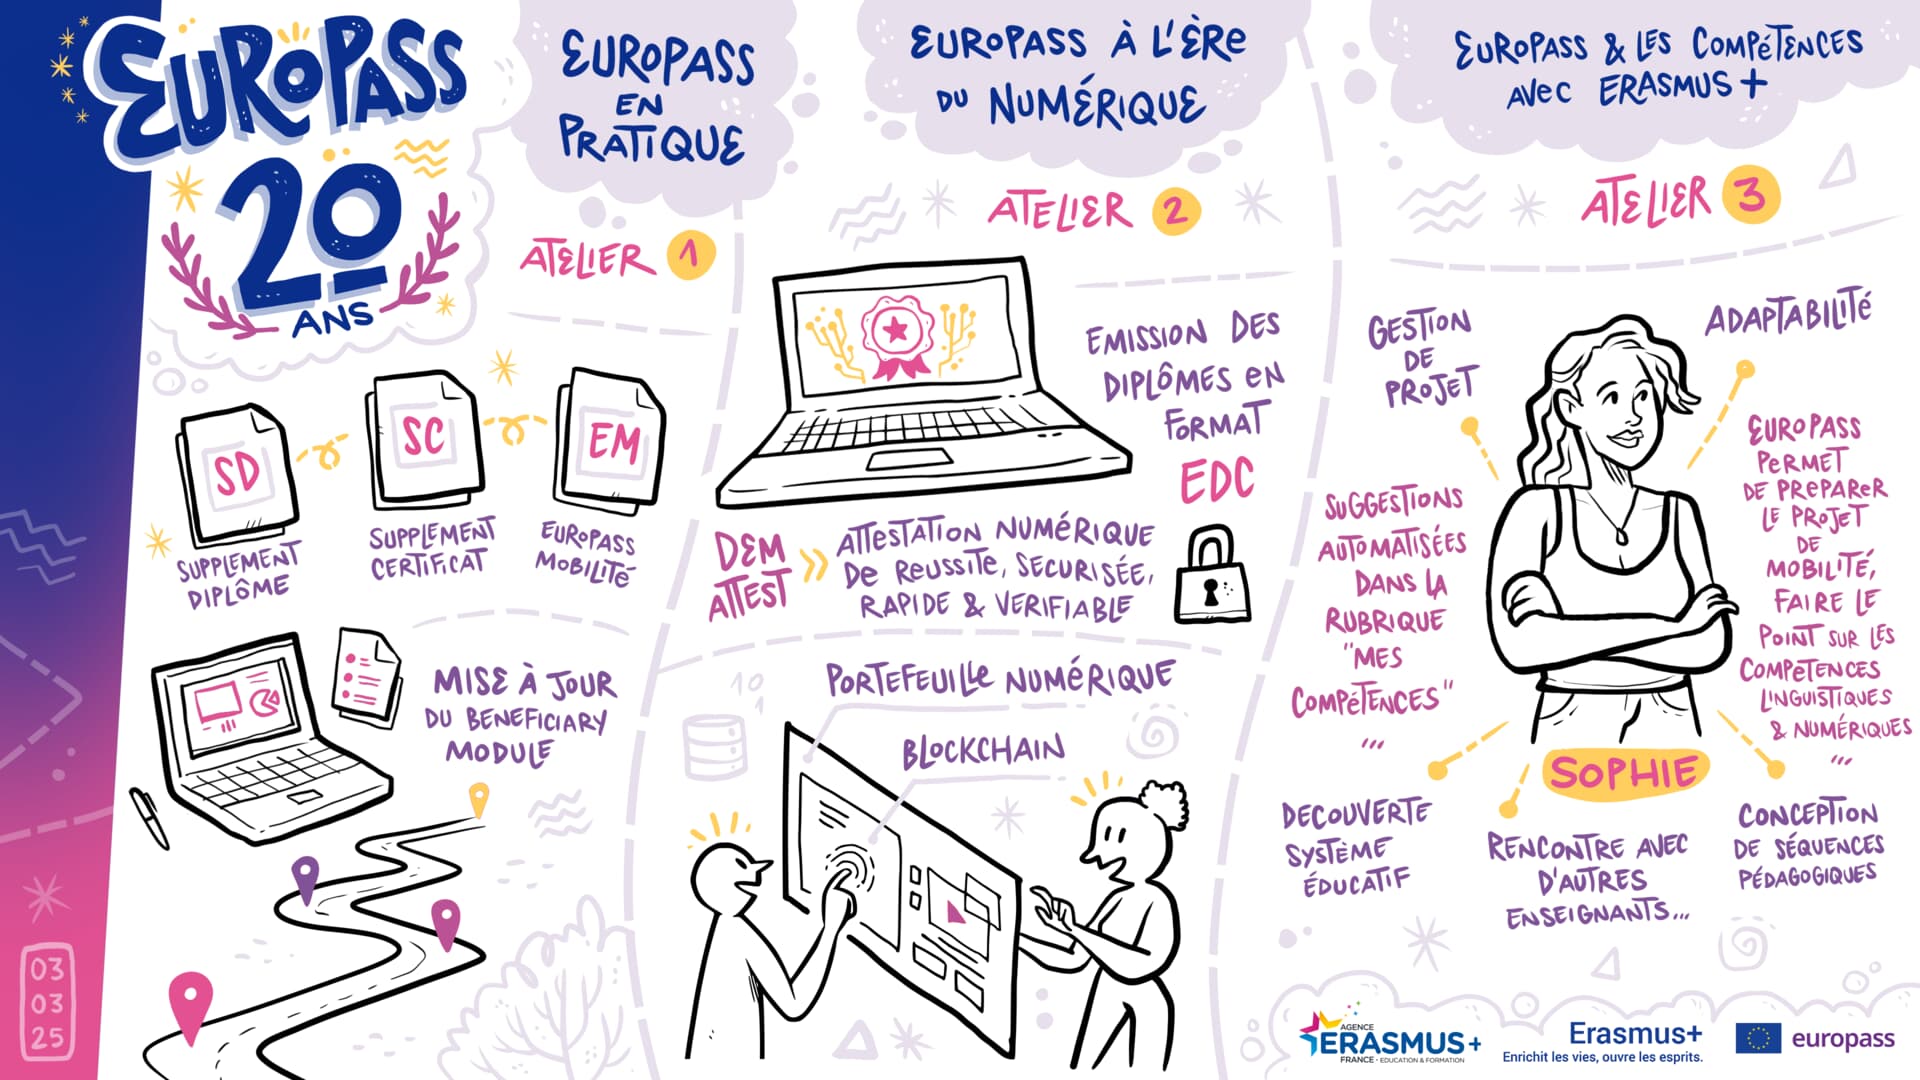 EUROPASS
20
ANS
03
03
25
EUROPASS
EN
PRATIQUE
ATELIER 1
SD
SC
EM
SUPPLEMENT
DIPLÔME
SUPPLEMENT
CERTIFICAT
EUROPASS
MOBILITÉ
MISE À JOUR
DU BENEFICIARY
MODULE
EUROPASS À L'ÈRE
DU NUMÉRIQUE
ATELIER 2
EMISSION DES
DIPLÔMES EN
FORMAT
EDC
DEM
ATTEST
ATTESTATION NUMÉRIQUE
DE REUSSITE, SECURISÉE,
RAPIDE & VERIFIABLE
10
1
1
PORTEFEUILLE NUMÉRIQUE
BLOCKCHAIN
EUROPASS & LES COMPÉTENCES
AVEC ERASMUS+
ATELIER 3
GESTION
DE
PROJET
ADAPTABILITÉ
SUGGESTIONS
AUTOMATISÉES
DANS LA
RUBRIQUE
"MES
COMPÉTENCES"
...
EUROPASS
PERMET
DE PREPARER
LE PROJET
DE
MOBILITÉ,
FAIRE LE
POINT SUR LES
COMPETENCES
LINGUISTIQUES
& NUMÉRIQUES
...
SOPHIE
DECOUVERTE
SYSTÈME
ÉDUCATIF
RENCONTRE AVEC
D'AUTRES
ENSEIGNANTS...
CONCEPTION
DE SÉQUENCES
PÉDAGOGIQUES
AGENCE
ERASMUS+
FRANCE - EDUCATION & FORMATION
Erasmus+
Enrichit les vies, ouvre les esprits.
europass